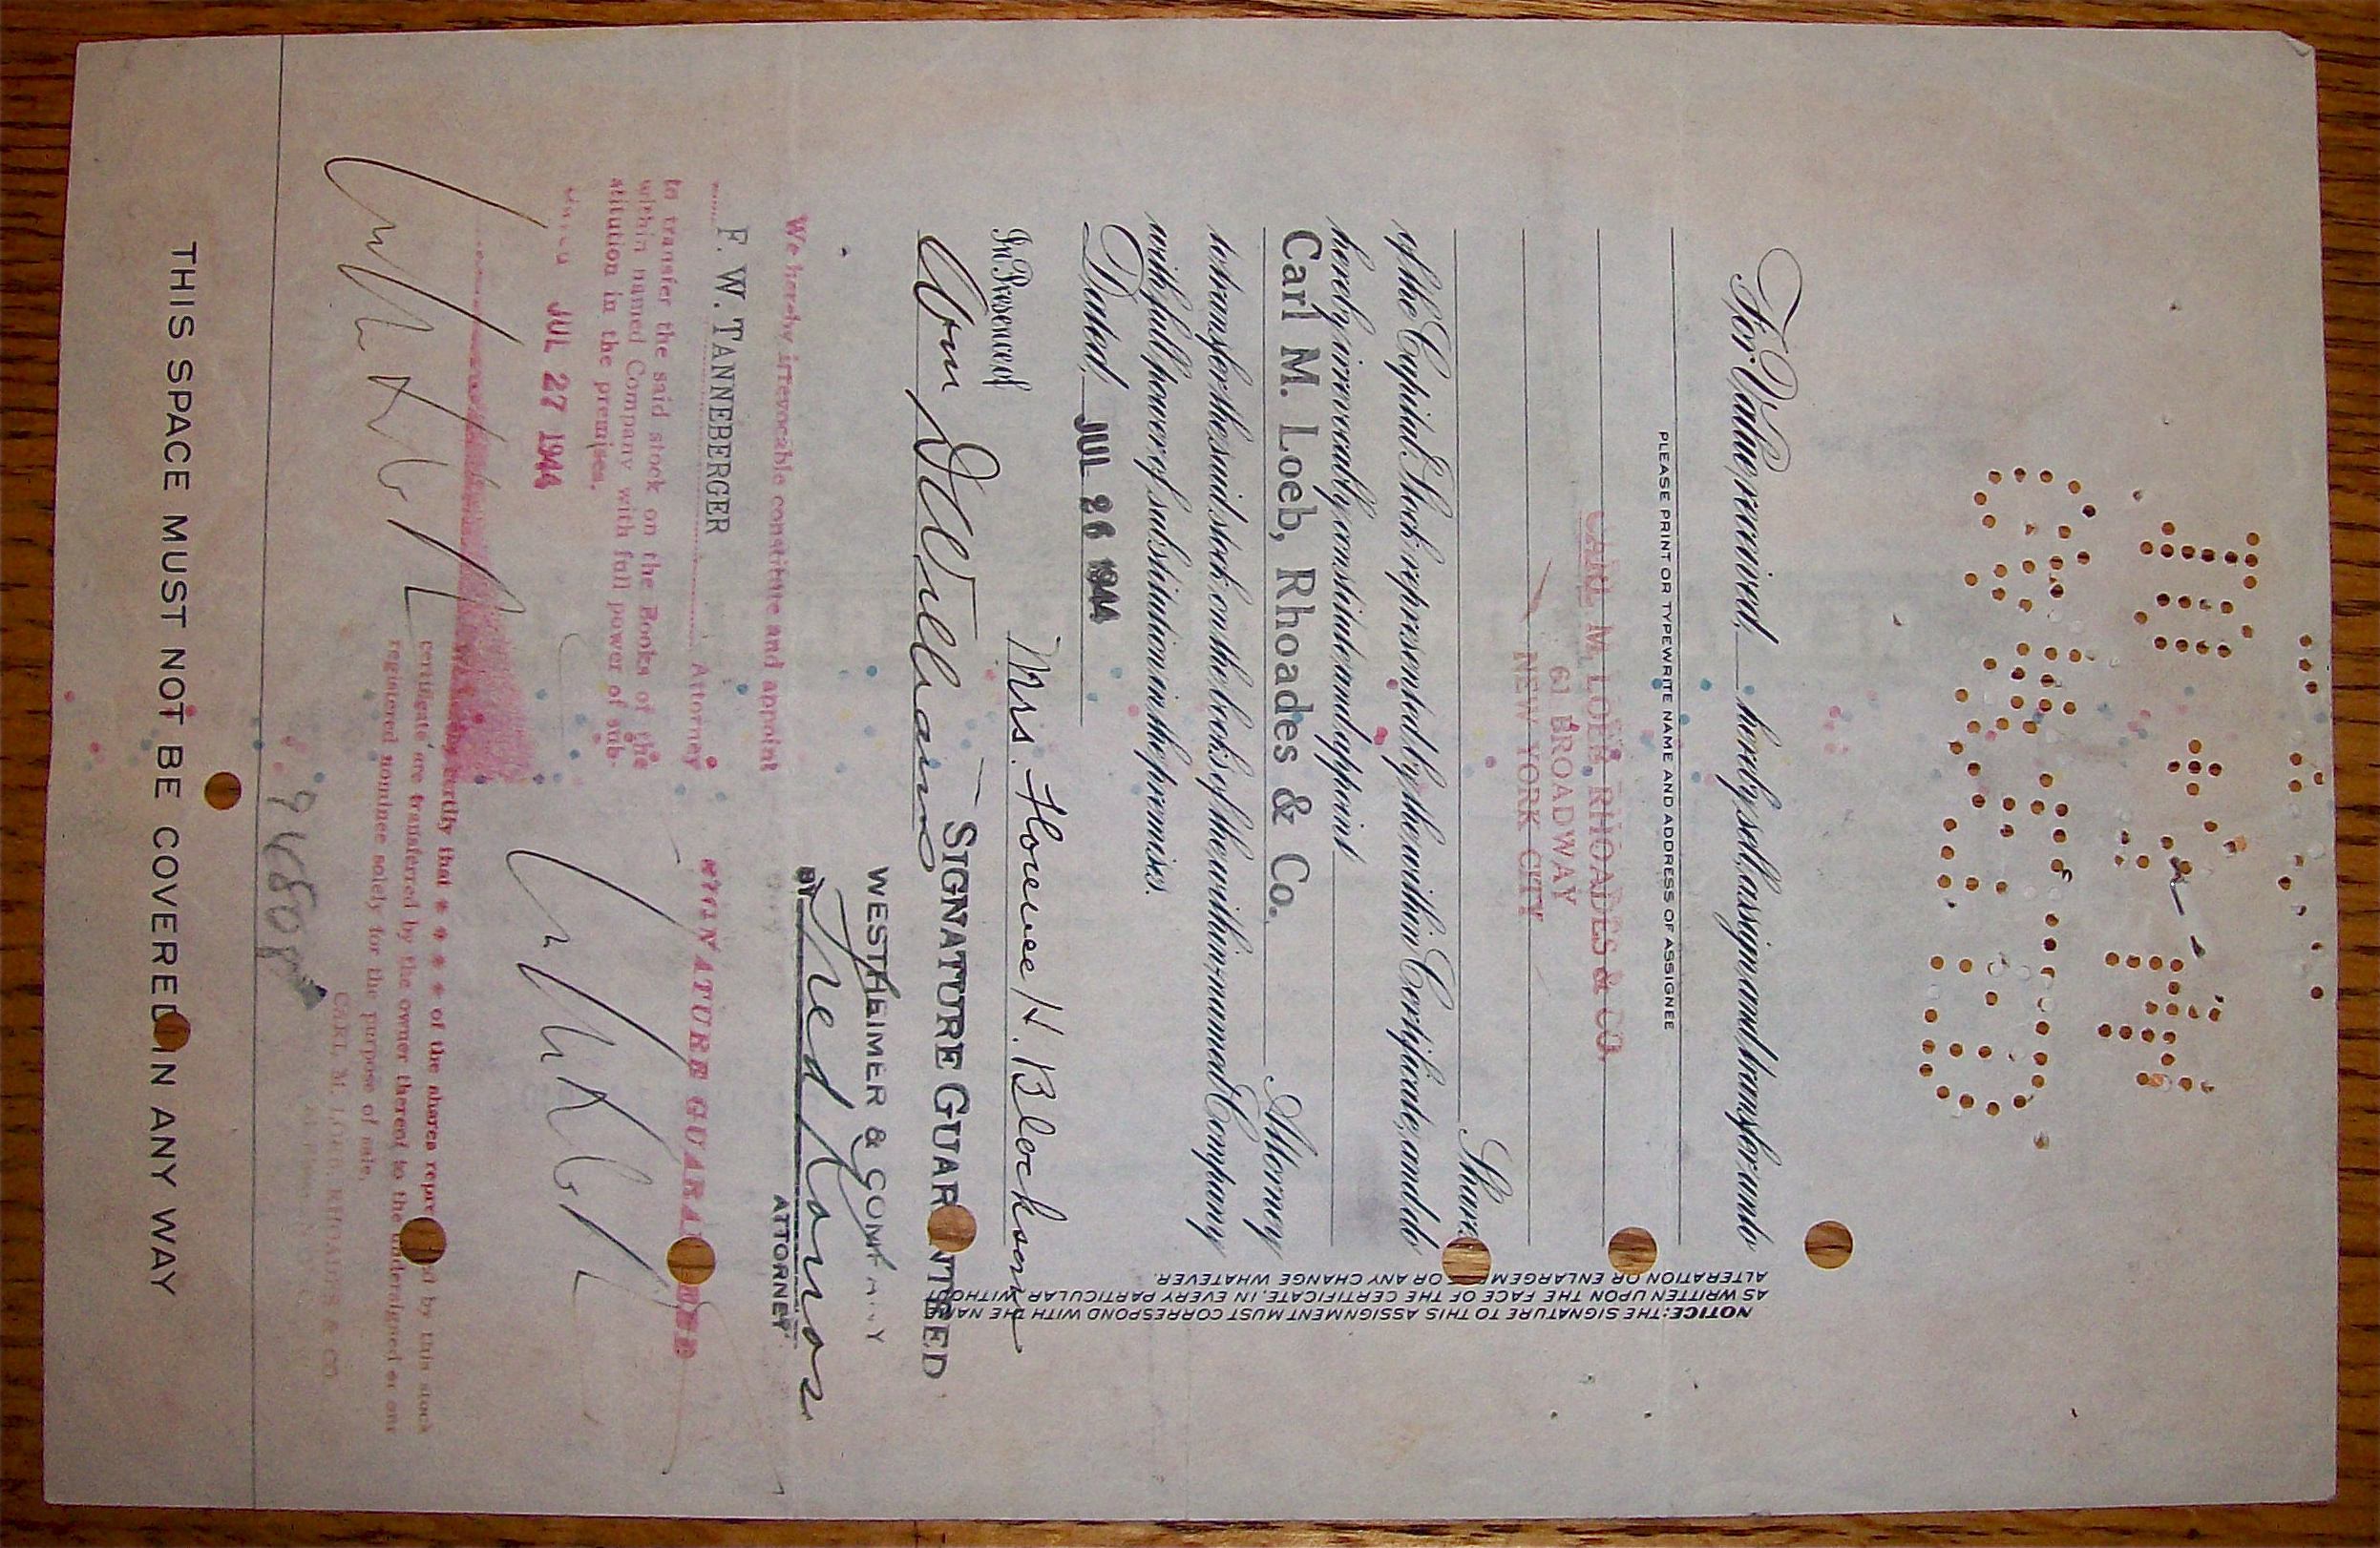 For Value received, hereby sell, assign and transfer unto
PLEASE PRINT OR TYPEWRITE NAME AND ADDRESS OF ASSIGNEE
CARL M. LOEB, RHOADES & CO.
61 BROADWAY
NEW YORK CITY
Shares
of the Capital Stock represented by the within Certificate, and do
hereby irrevocably constitute and appoint
Carl M. Loeb, Rhoades & Co. Attorney
to transfer the said stock on the books of the within-named Company
with full power of substitution in the premises.
Dated, JUL 26 1944
Mrs. Florence H. Blocksom
In Presence of
SIGNATURE GUARANTEED
WESTHEIMER & COMPANY
BY
ATTORNEY
NOTICE: THE SIGNATURE TO THIS ASSIGNMENT MUST CORRESPOND WITH THE NAME
AS WRITTEN UPON THE FACE OF THE CERTIFICATE, IN EVERY PARTICULAR, WITHOUT
ALTERATION OR ENLARGEMENT OR ANY CHANGE WHATEVER.
We hereby irrevocable constitute and appoint
F. W. TANNEBERGER Attorney
to transfer the said stock on the Books of the
within named Company with full power of sub-
stitution in the premises.
JUL 27 1944
SIGNATURE GUARANTEED
We hereby certify that * * * * of the shares represented by this stock
certificate are transferred by the owner thereof to the undersigned or our
registered nominee solely for the purpose of sale.
CARL M. LOEB, RHOADES & CO.
THIS SPACE MUST NOT BE COVERED IN ANY WAY